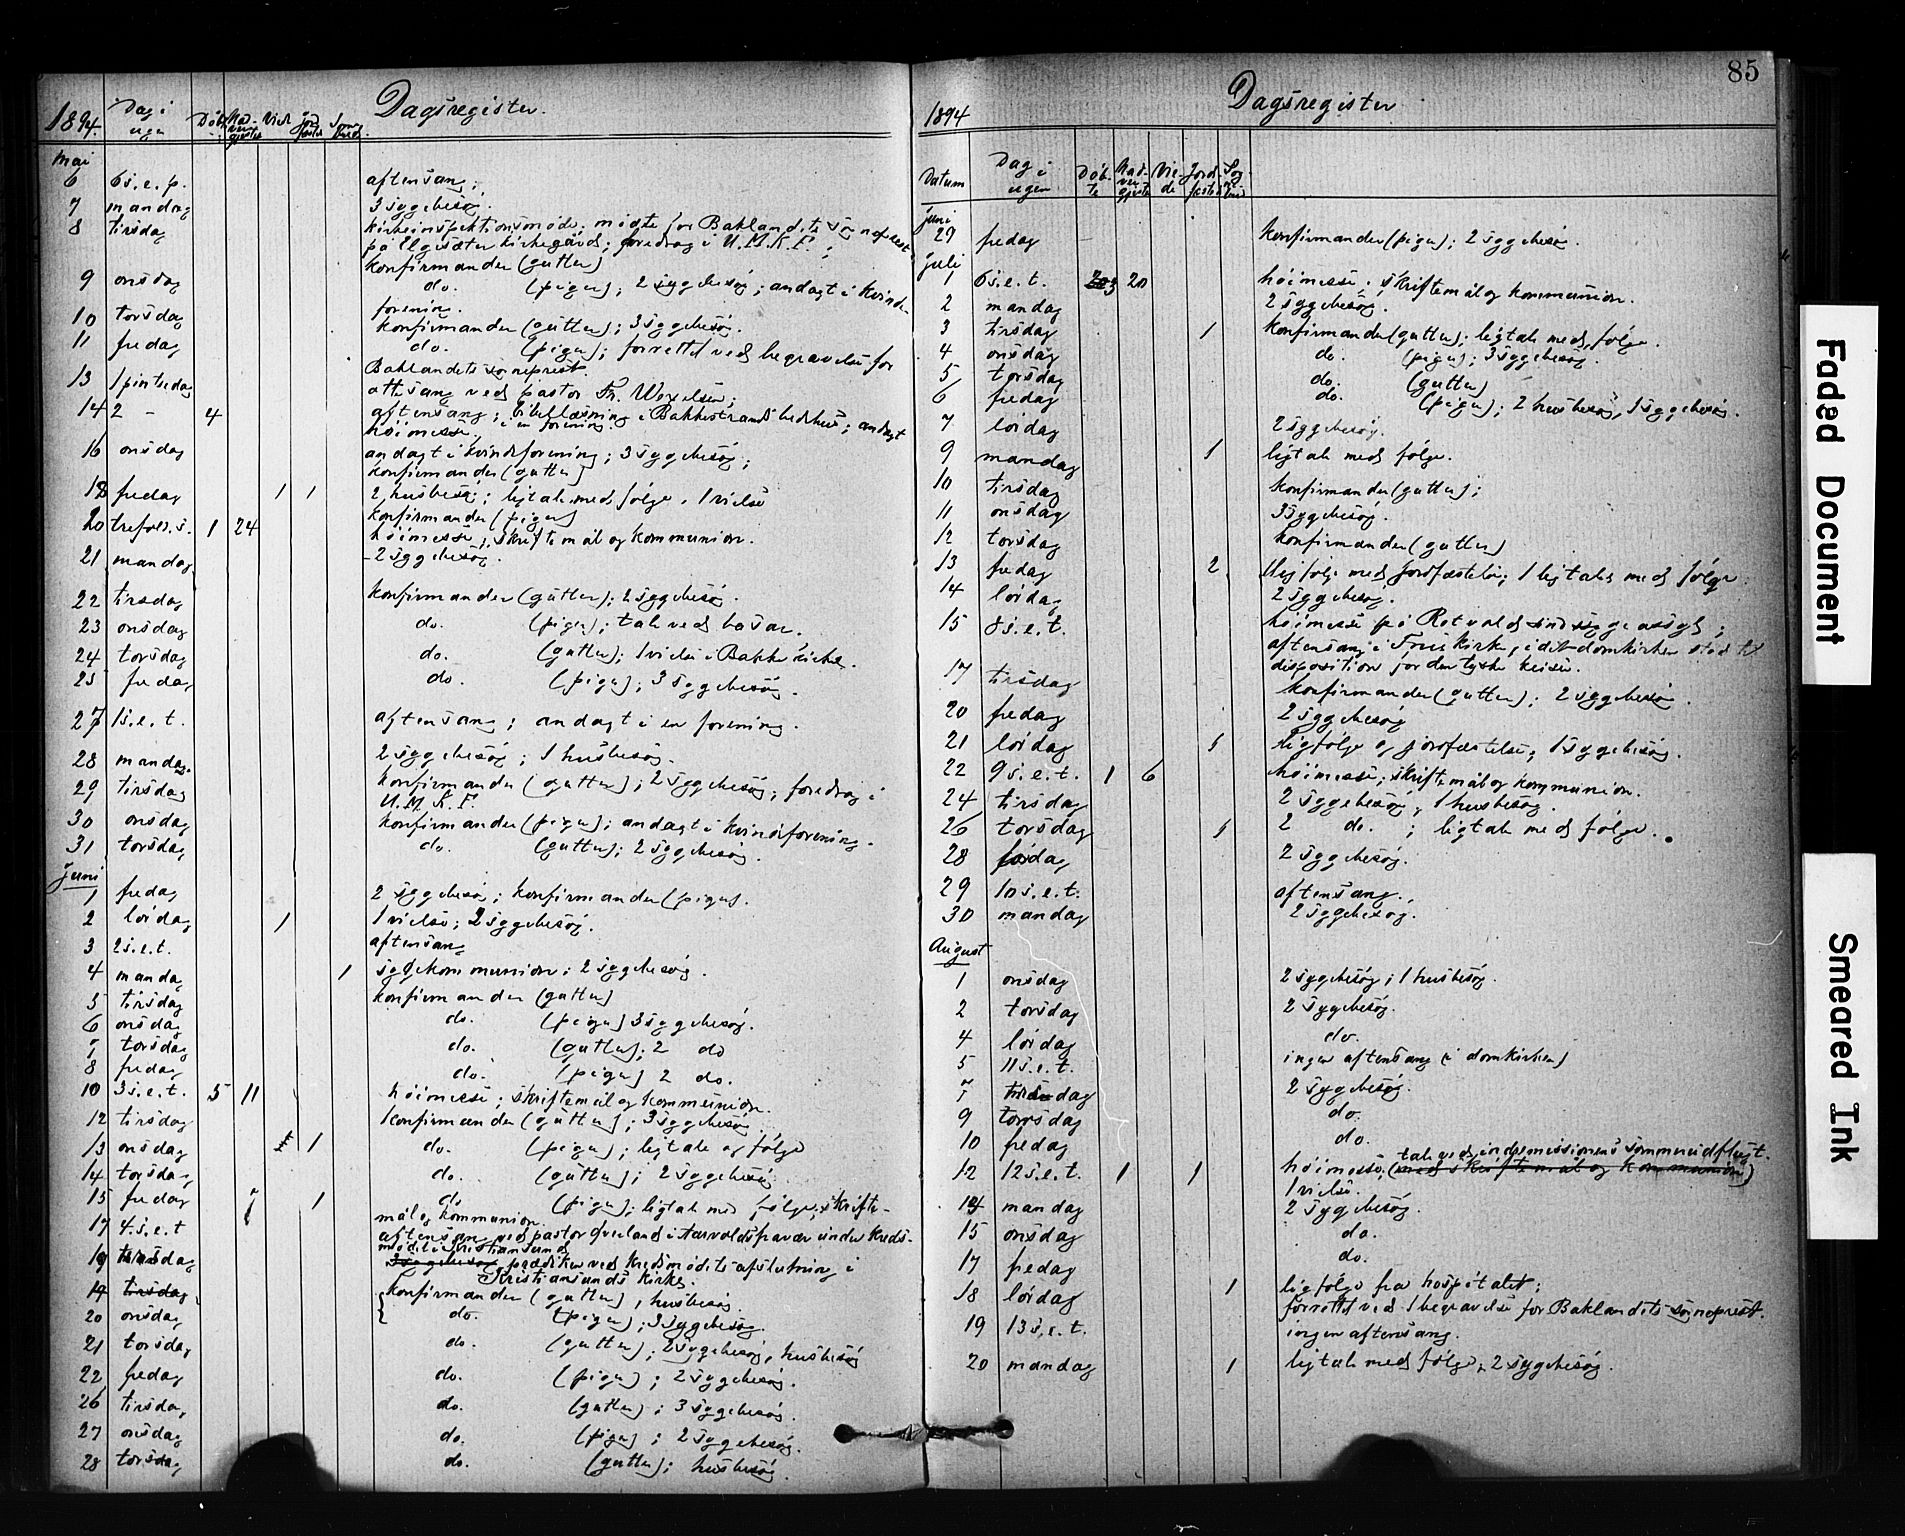 1894. Dag i ugen Døbte Nadvergjester Viede Jordfæstede Dagsregister.
Mai
6 6 s.e.p. aftensang;
7 mandag 3 sygebesøg.
8 tirsdag kirkeinspektionsmøde; mødte for Baklandets sogneprest
på Elgesæter kirkegård; foredrag i U.M.K.F.;
konfirmander (gutter)
9 onsdag do. (piger); 2 sygebesøg; andagt i kvinde-
forening.
10 torsdag konfirmander (gutter); 3 sygebesøg.
11 fredag do. (piger); forrettet ved begravelse for
Baklandets sogneprest.
13 1 pintsedag ottesang ved pastor Fr. Wexelsen;
aftensang; bibellæsning i Bakkestrands bedehus; andagt
i en forening.
14 2 - 4 høimesse,
16 onsdag andagt i kvindeforening; 3 sygebesøg;
konfirmander (gutter)
18 fredag 1 1 2 husbesøg; ligtale med følge. 1 vielse
konfirmander (piger)
20 trefold. s. 1 24 høimesse, skriftemål og kommunion.
21 mandag 2 sygebesøg.
22 tirsdag konfirmander (gutter); 2 sygebesøg.
23 onsdag do. (piger); tale ved basar.
24 torsdag do. (gutter); 1 vielse i Bakke kirke.
25 fredag do. (piger); 3 sygebesøg.
27 1 s.e.t. aftensang; andagt i en forening.
28 mandag. 2 sygebesøg; 1 husbesøg.
29 tirsdag konfirmander (gutter); 2 sygebesøg; foredrag i
U.M.K.F.
30 onsdag konfirmander (piger); andagt i kvindeforening.
31 torsdag do. (gutter); 2 sygebesøg.
Juni
1 fredag 2 sygebesøg; konfirmander (piger).
2 lørdag 1 1 vielse; 2 sygebesøg.
3 2 s.e.t. aftensang
4 mandag 1 sygekommunion; 2 sygebesøg.
5 tirsdag konfirmander (gutter)
6 onsdag do. (piger) 3 sygebesøg.
7 torsdag do. (gutter); 2 do
8 fredag do. (piger) 2 do.
10 3 s.e.t. 5 11 høimesse; skriftemål og kommunion.
12 tirsdag konfirmander (gutter); 3 sygebesøg.
13 onsdag 1 do. (piger); ligtale og følge
14 torsdag do. (gutter); 2 sygebesøg.
15 fredag 7 1 do (piger); ligtale med følge; skrifte-
mål og kommunion.
17 4. s.e.t aftensang ved pastor Øverland i Aarvolds fravær under kreds-
mødet i Kristiansund
19 tirsdag sygebesøg, prædiken ved kredsmødets afslutning i
Kristiansunds kirke.
19 tirsdag konfirmander (gutter), husbesøg.
20 onsdag do. (piger); 3 sygebesøg.
21 torsdag do. (gutter); 2 sygebesøg, husbesøg
22 fredag do. (piger); 2 sygebesøg.
26 tirsdag do. (gutter); 3 sygebesøg.
27 onsdag do. (piger); 2 sygebesøg.
28 torsdag do. (gutter); husbesøg.
85
1894 Dagsregister
Datum Dag i ugen Døbte Nadvergjester Viede Jordfæstede
Juni
29 fredag konfirmander (piger); 2 sygebesøg.
Juli
1 6 s.e.t. 3 20 høimesse; skriftemål og kommunion.
2 mandag 2 sygebesøg.
3 tirsdag 1 konfirmander (gutter); ligtale med følge.
4 onsdag do. (piger); 3 sygebesøg.
5 torsdag do. (gutter)
6 fredag do. (piger); 2 husbesøg, 3 sygebesøg.
7 lørdag 2 sygebesøg.
9 mandag 1 ligtale med følge.
10 tirsdag konfirmander (gutter);
11 onsdag 3 sygebesøg.
12 torsdag konfirmander (gutter)
13 fredag 2 1 ligfølge med jordfæstelse; 1 ligtale med følge
14 lørdag 2 sygebesøg.
15 8 s.e.t. høimesse på Rotvold sindsygeasyl;
aftensang i Frue kirke, idet domkirken stod til
disposition for den tyske keiser.
17 tirsdag konfirmander (gutter); 2 sygebesøg.
20 fredag 2 sygebesøg
21 lørdag 1 ligfølge og jordfæstelse; 1 sygebesøg.
22 9 s.e.t. 1 6 høimesse; skriftemål og kommunion.
24 tirsdag 2 sygebesøg, 1 husbesøg.
26 torsdag 1 2 do.; ligtale med følge.
28 lørdag 2 sygebesøg.
29 10 s.e.t. aftensang.
30 mandag 2 sygebesøg.
August
1 onsdag 2 sygebesøg; 1 husbesøg.
2 torsdag 2 sygebesøg.
4 lørdag do.
5 11 s.e.t. ingen aftensang (i domkirken)
7 tirsdag 2 sygebesøg.
9 torsdag do.
10 fredag do.
tale ved indremissionens sommerudflugt.
12 12 s.e.t. 1 1 høimesse; (med skriftemål og kommunion)
1 vielse.
14 mandag 2 sygebesøg.
15 onsdag do.
17 fredag do.
18 lørdag 1 ligfølge fra hospitalet;
forrettet ved 1 begravelse for Baklandets sogneprest.
19 13 s.e.t. ingen aftensang.
20 mandag 1 ligtale med følge, 2 sygebesøg.
Faded Document
Smeared Ink